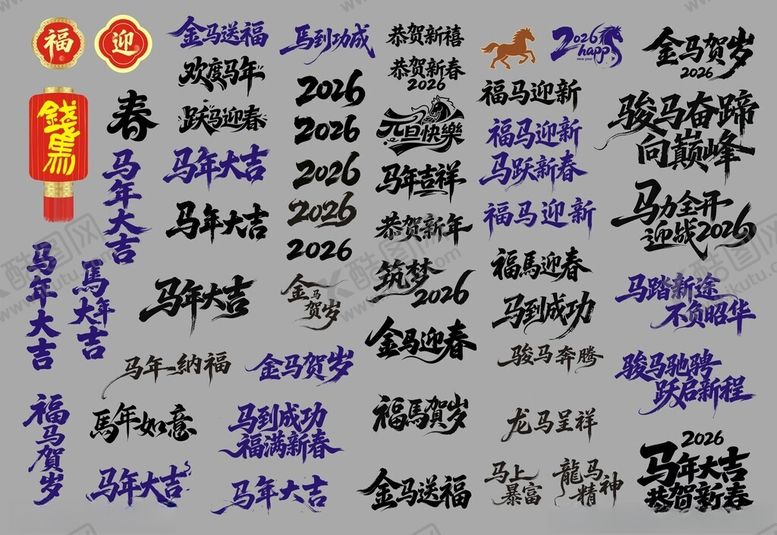 福
迎
金马送福
马到功成
恭贺新禧
2026
happy
new year
金马贺岁
2026
錢馬
春
欢度马年
跃马迎春
马年大吉
马年大吉
马年大吉
2026
2026
2026
2026
2026
恭贺新春
2026
元旦快樂
马年吉祥
恭贺新年
福马迎新
福马迎新
马跃新春
福马迎新
骏马奋蹄
向巅峰
马力全开
迎战2026
马年大吉
馬年大吉
马年大吉
金马贺岁
筑梦
2026
福馬迎春
马到成功
马踏新途
不负昭华
马年纳福
金马贺岁
金马迎春
骏马奔腾
骏马驰骋
跃启新程
福马贺岁
馬年如意
马到成功
福满新春
福馬贺岁
龙马呈祥
马年大吉
马年大吉
金马送福
马上
暴富
龍马
精神
2026
马年大吉
恭贺新春